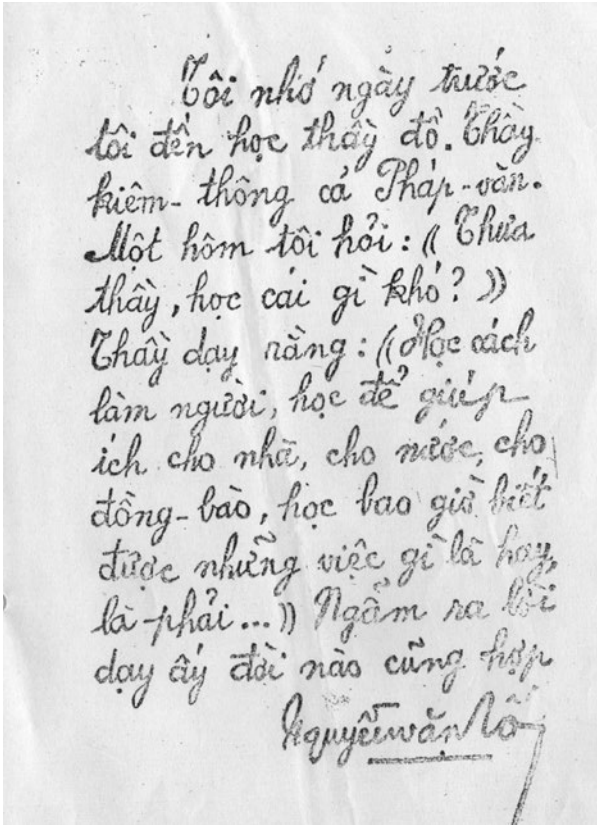 Tôi nhớ ngày trước
tôi đến học thầy đồ. Thầy
kiêm-thông cả Pháp-văn.
Một hôm tôi hỏi: (( Thưa
thầy, học cái gì khó? ))
Thầy dạy rằng: (( Học cách
làm người, học để giúp
ích cho nhà, cho nước, cho
đồng-bào, học bao giờ biết
được những việc gì là hay,
là phải... )) Ngẫm ra lời
dạy ấy đời nào cũng hợp
Nguyễn văn Tố